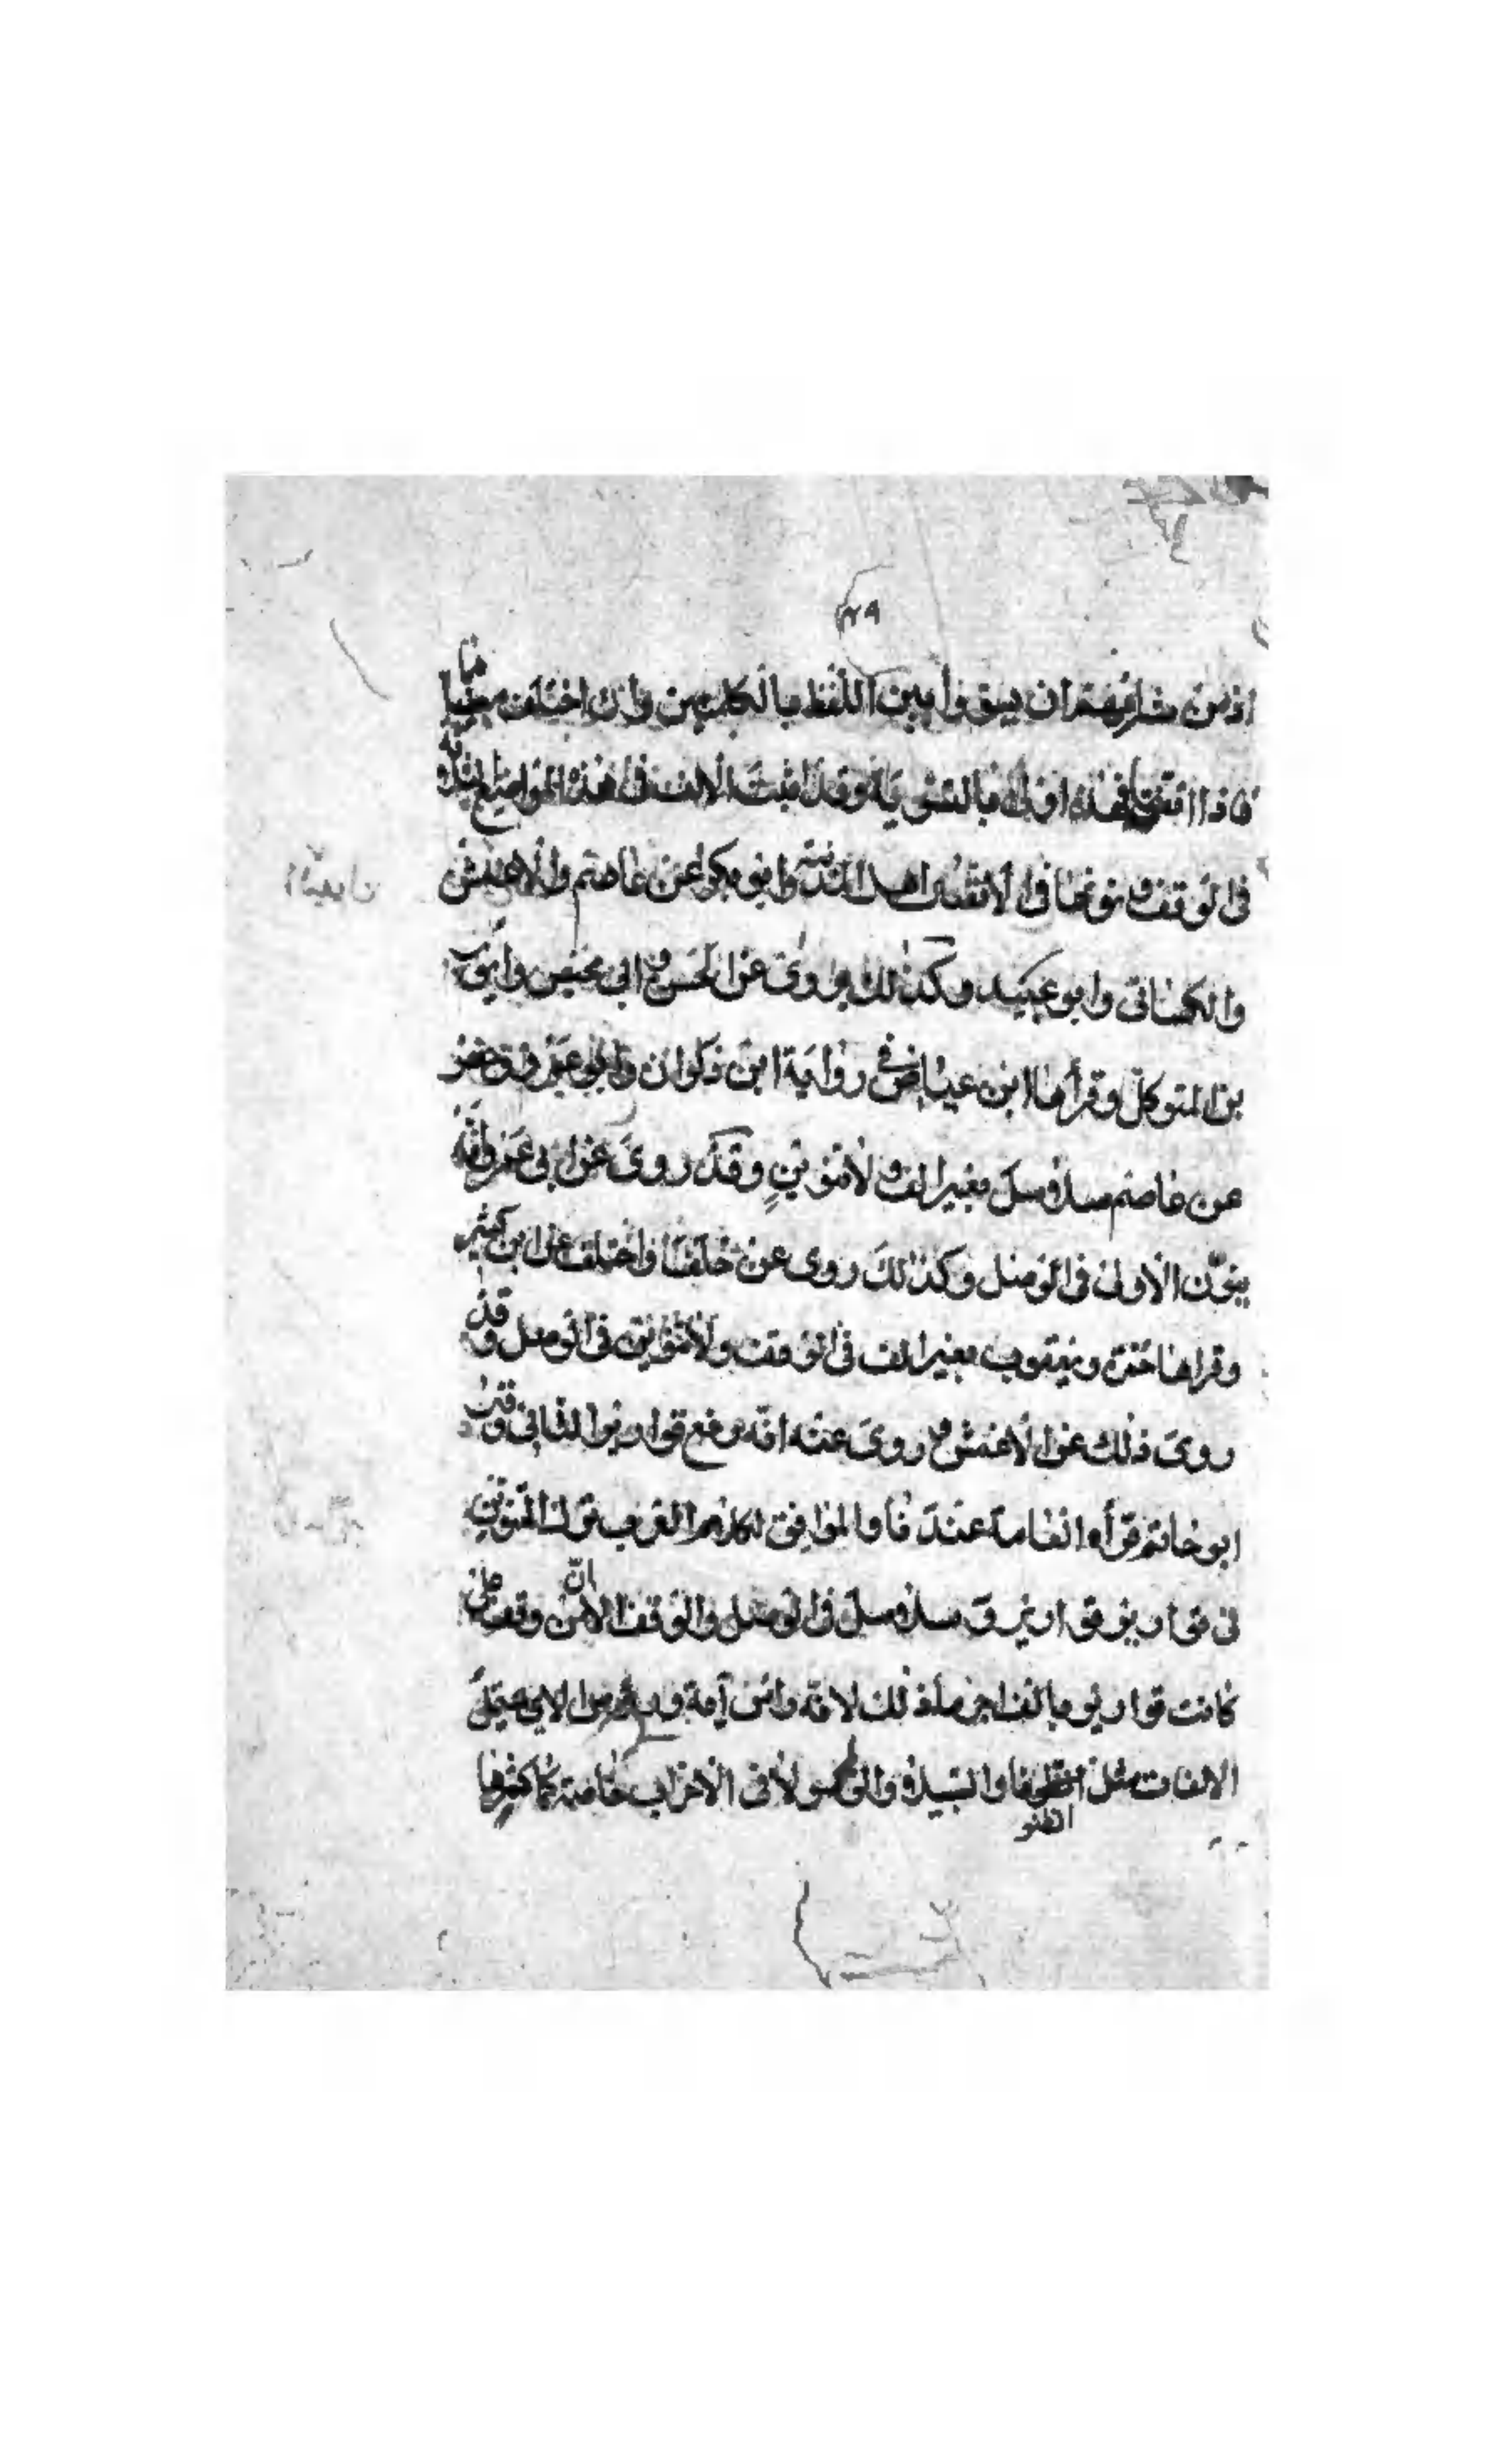 ١٢٩
اذ من شانهم ان يسووا بين اللفظ بالكلمتين وان اختلف معنياهما
فاذا اتفق فهذه اولى بالتسوية وقد اثبت الالف في هذه المواضع الثلاثة
في الوقف ونونها في الادراج اهل المدينة وابو بكر عن عاصم والاعمش
والكسائي وابو عبيد وكذلك روى عن الحسن و ابي محيص وايوب
بن المتوكل وقرأها ابن عياض في رواية ابن ذكوان وابو عمرو وحفص
عن عاصم سلاسل بغير الف ولا تنوين وقد روى عن ابي عمرو انه
ينون الاولى في الوصل وكذلك روى عن خلف واختلف عن ابن كثير
وقراها حمزة ويعقوب بغير الف في الوقف ولا تنوين في الوصل وقد
روى ذلك عن الاعمش و روى عنه انه رفع قوارير الثاني وقال
ابو حاتم قرأه العامة عندنا والموافق لكلام العرب ترك التنوين
في قوارير قوارير و سلاسل في الوصل والوقف الا ان من وقف على
كانت قوارير بالف اجزنا ذلك لانه راس آية ورؤس الآي يحتمل
الالفات مثل الظنونا والسبيلا والرسولا في الاحزاب خاصة كما كثرها
الظنو